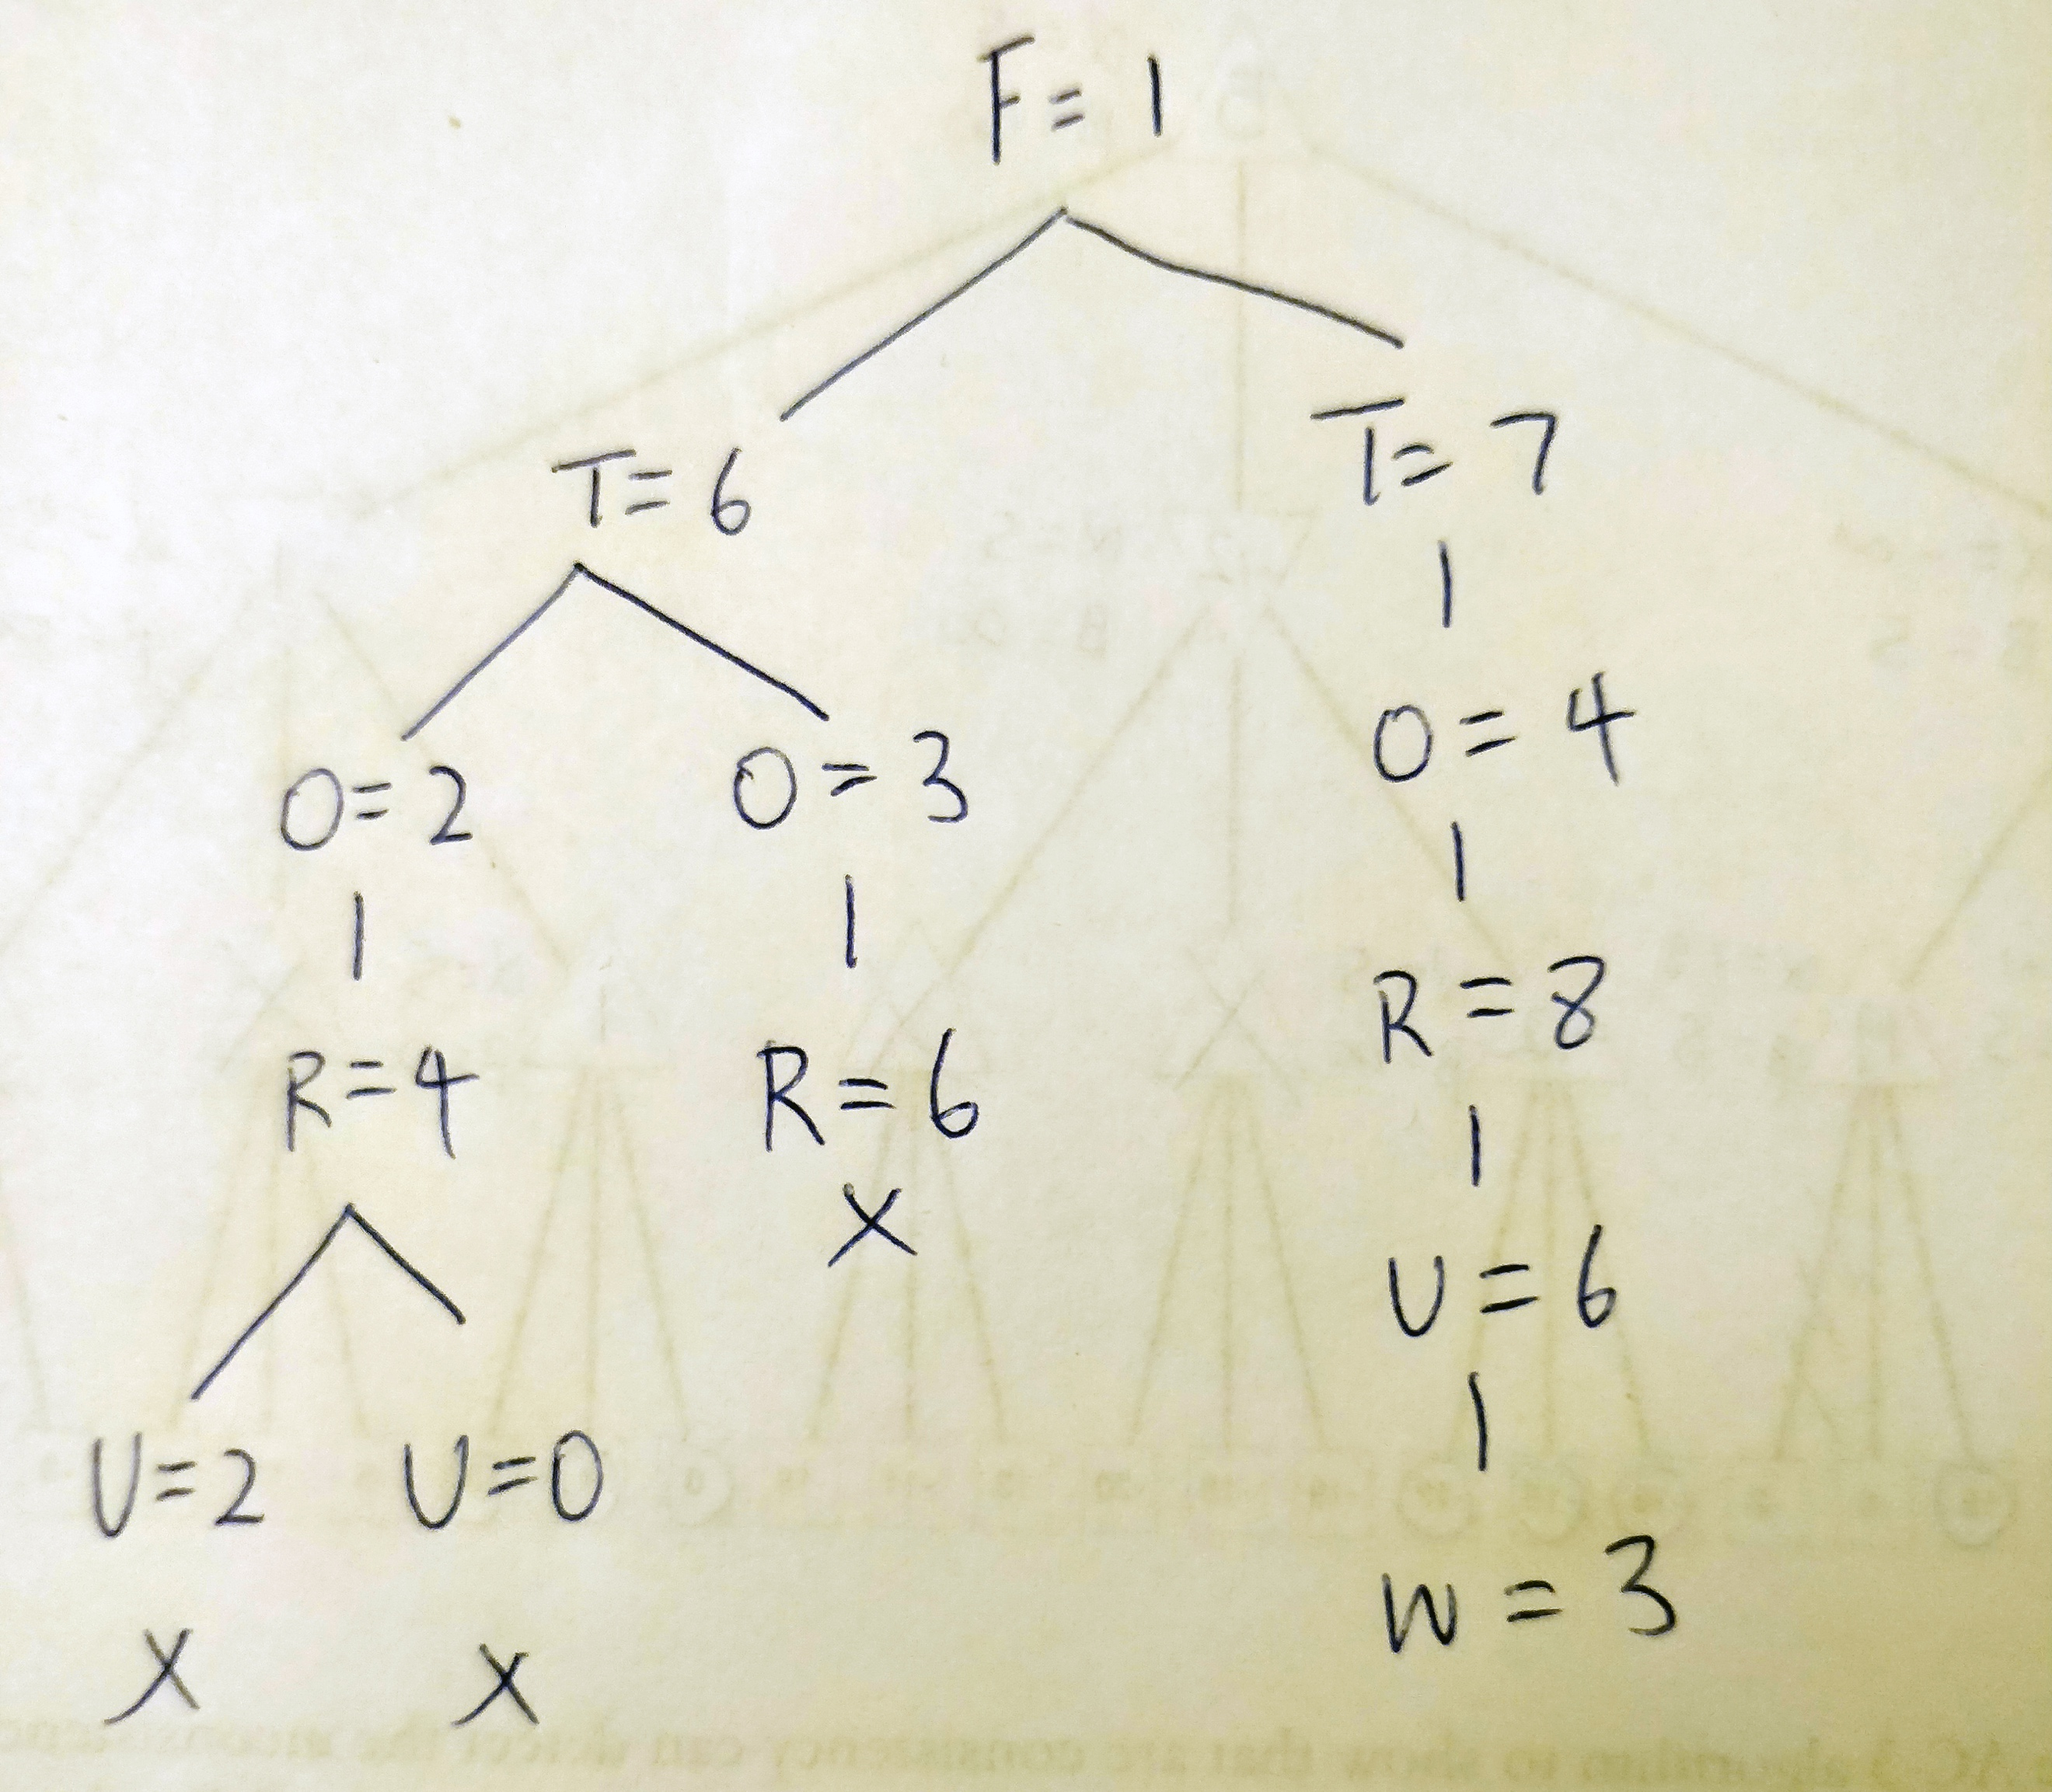 F = 1
T = 6
T = 7
O = 2
O = 3
O = 4
R = 4
R = 6
R = 8
X
U = 2
U = 0
U = 6
X
X
W = 3